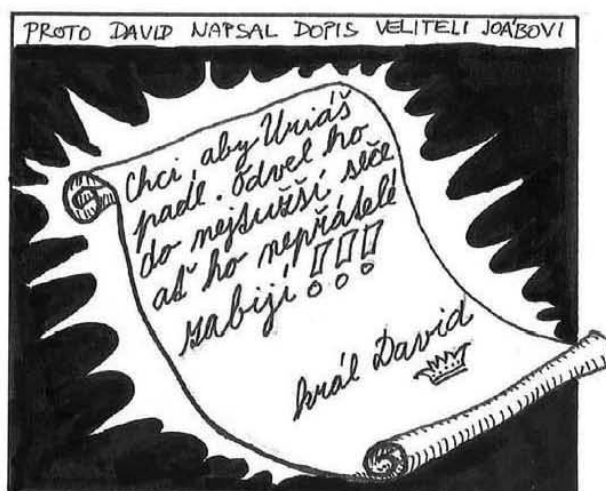 PROTO DAVID NAPSAL DOPIS VELITELI JOÁBOVI
Chci aby Uriáš
padl. Odveľ ho
do nejtužší seče
ať ho nepřátelé
zabijí!!!
král David